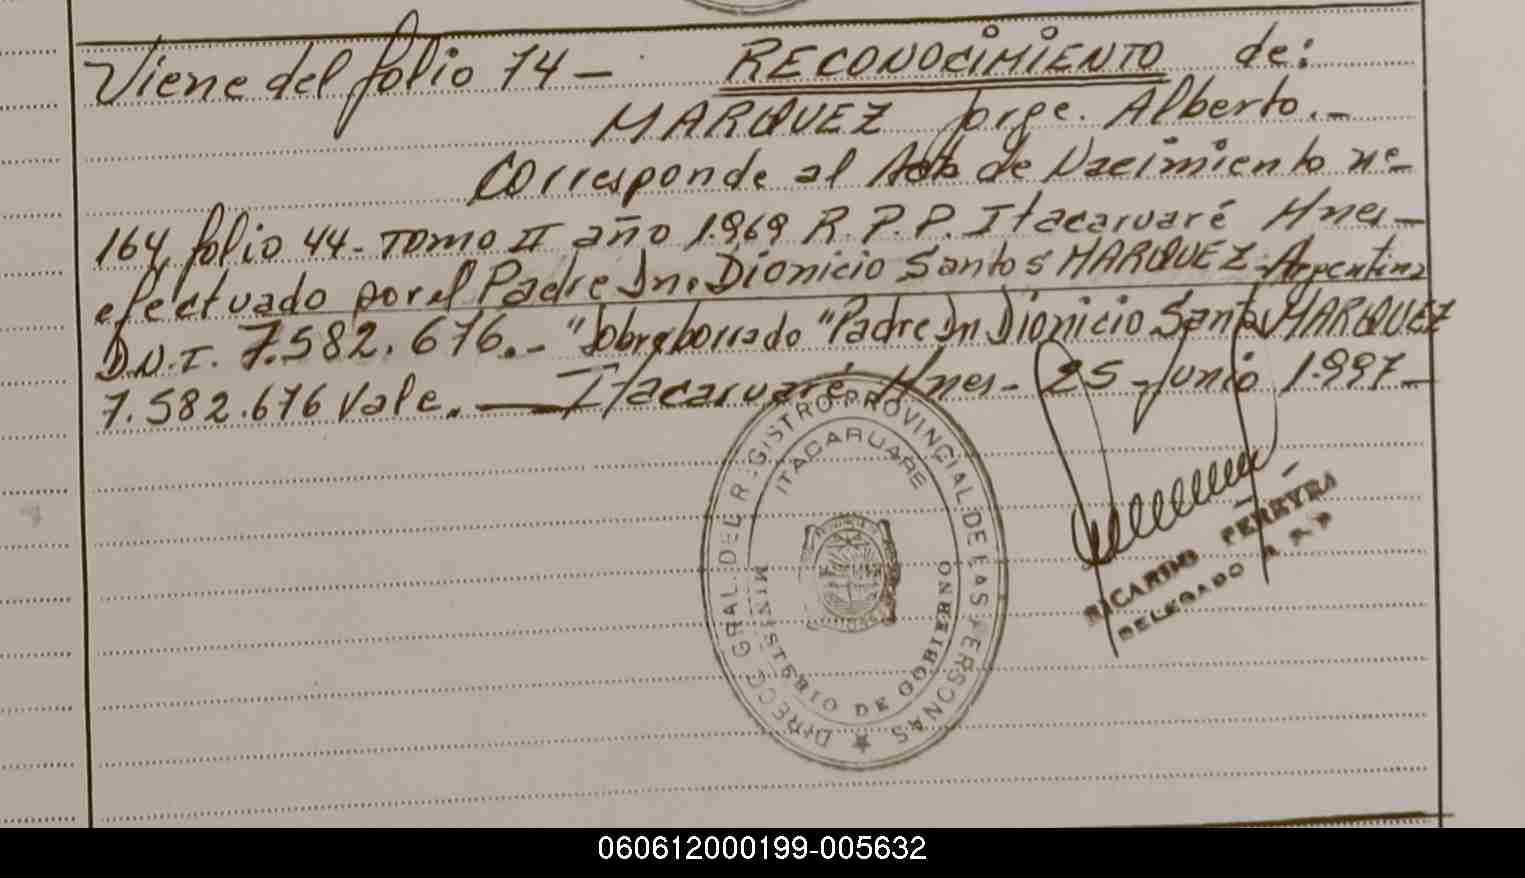 Viene del folio 74 - RECONOCIMIENTO de:
MARQUEZ Jorge. Alberto.-
Corresponde al Acta de Nacimiento nº
164, folio 44 - TOMO II año 1.969 R.P.P. Itacaruaré Mnes-
efectuado por el Padre Dn. Dionicio Santos MARQUEZ - Argentina
D.N.I. 7.582.676.- "Sobreborrado "Padre Dn Dionicio Santos MARQUEZ
7.582.676 Vale. — Itacaruaré, Mnes - 25 - Junio 1.997-
DIRECC. GRAL. DEL REGISTRO PROVINCIAL DE LAS PERSONAS
ITACARUARE
MINISTERIO DE GOBIERNO
RICARDO PEREYRA
DELEGADO R P P
060612000199-005632